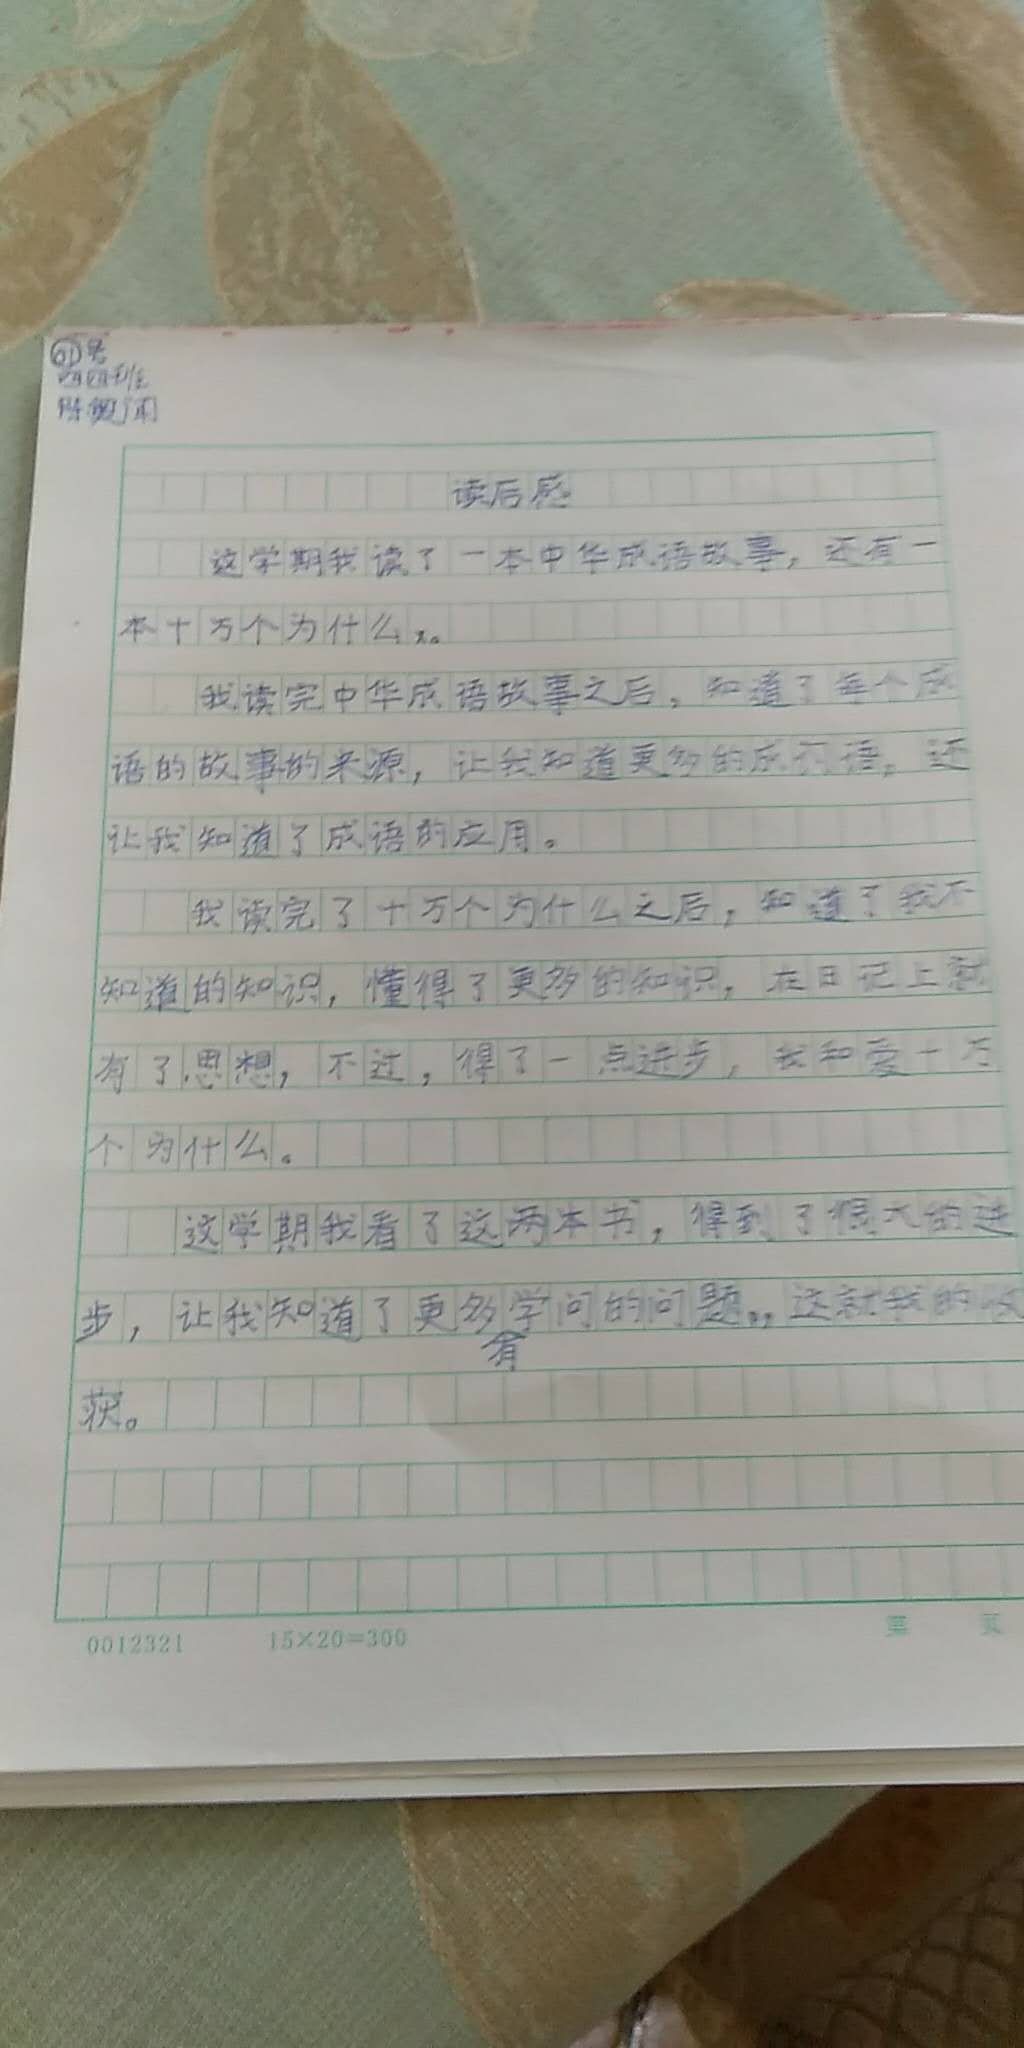 01号
四四班
陈奥
读后感
这学期我读了一本中华成语故事，还有一
本十万个为什么。
我读完中华成语故事之后，知道了每个成
语的故事的来源，让我知道更多的成语，还
让我知道了成语的应用。
我读完了十万个为什么之后，知道了我不
知道的知识，懂得了更多的知识，在日记上就
有了思想，不过，得了一点进步，我和爱十万
个为什么。
这学期我看了这两本书，得到了很大的进
步，让我知道了更多学问的问题。，这就我的收
有
获。
0012321 15×20=300 第 页